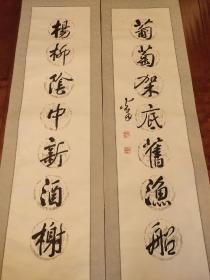 葡萄架底舊漁船
楊柳陰中新酒榭